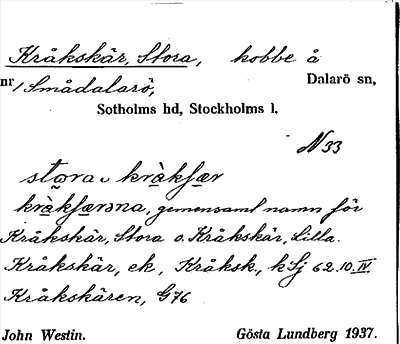 Kråkskär, Stora, kobbe å
nr 1 Smådalarö, Dalarö sn,
Sotholms hd, Stockholms l.
N 33
stora kråkʃær
kråkʃærəna, gemensamt namn för
Kråkskär, Stora o. Kråkskär, Lilla.
Kråkskär, ek, Kråksk., k Sj 62.10.IV.
Kråkskären, G76
John Westin. Gösta Lundberg 1937.